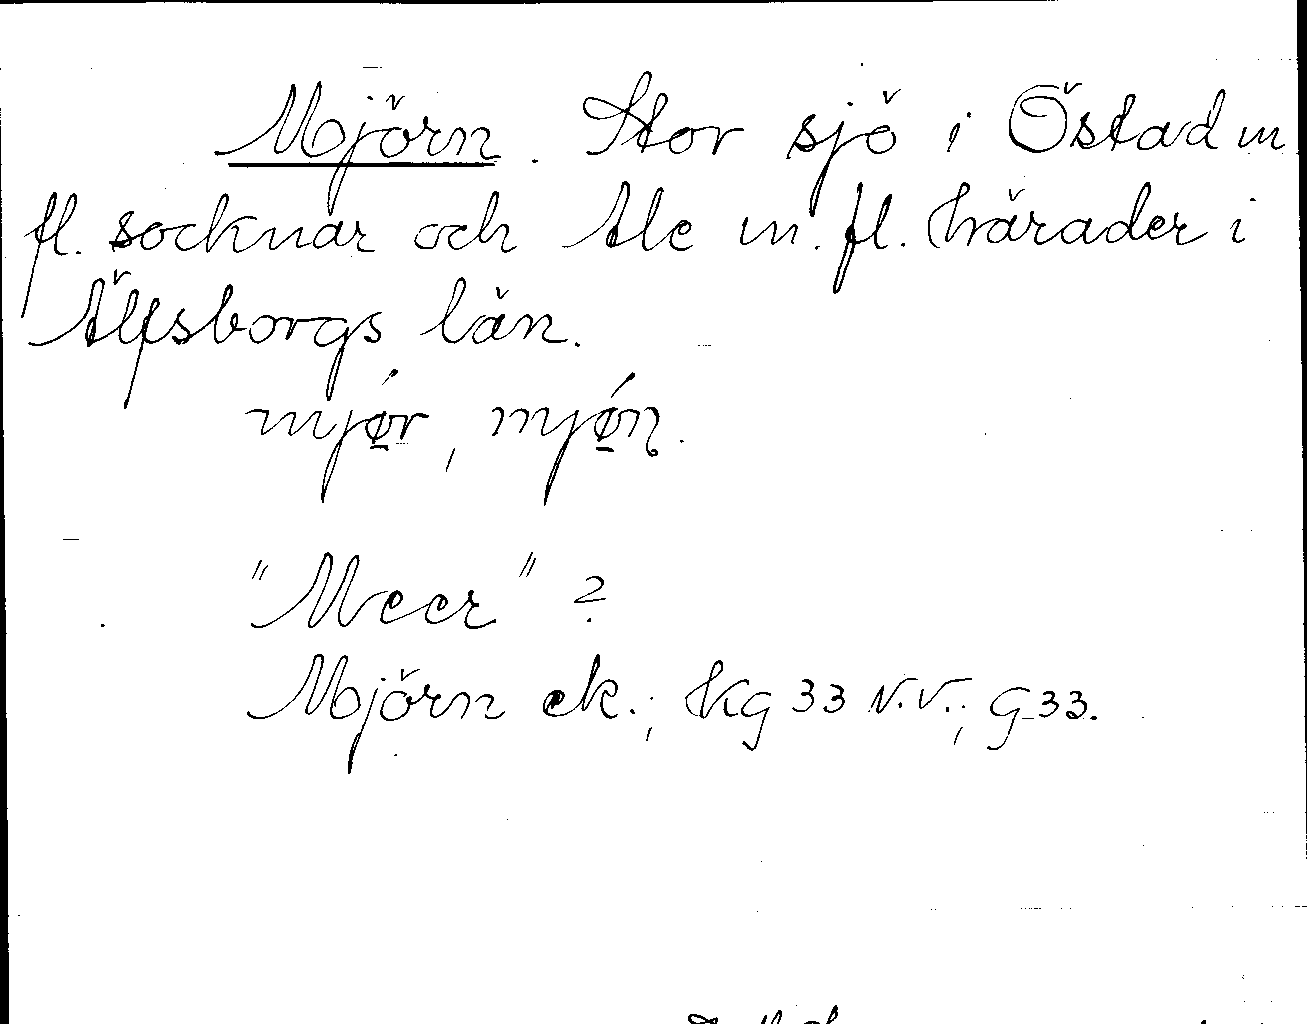 Mjörn. Stor sjö i Östad m
fl. socknar och Ale m. fl. härader i
Älfsborgs län.
mjǿr, mjǿn.
"Meer" ?
Mjörn ek.; Kg 33 N.V.; G 33.